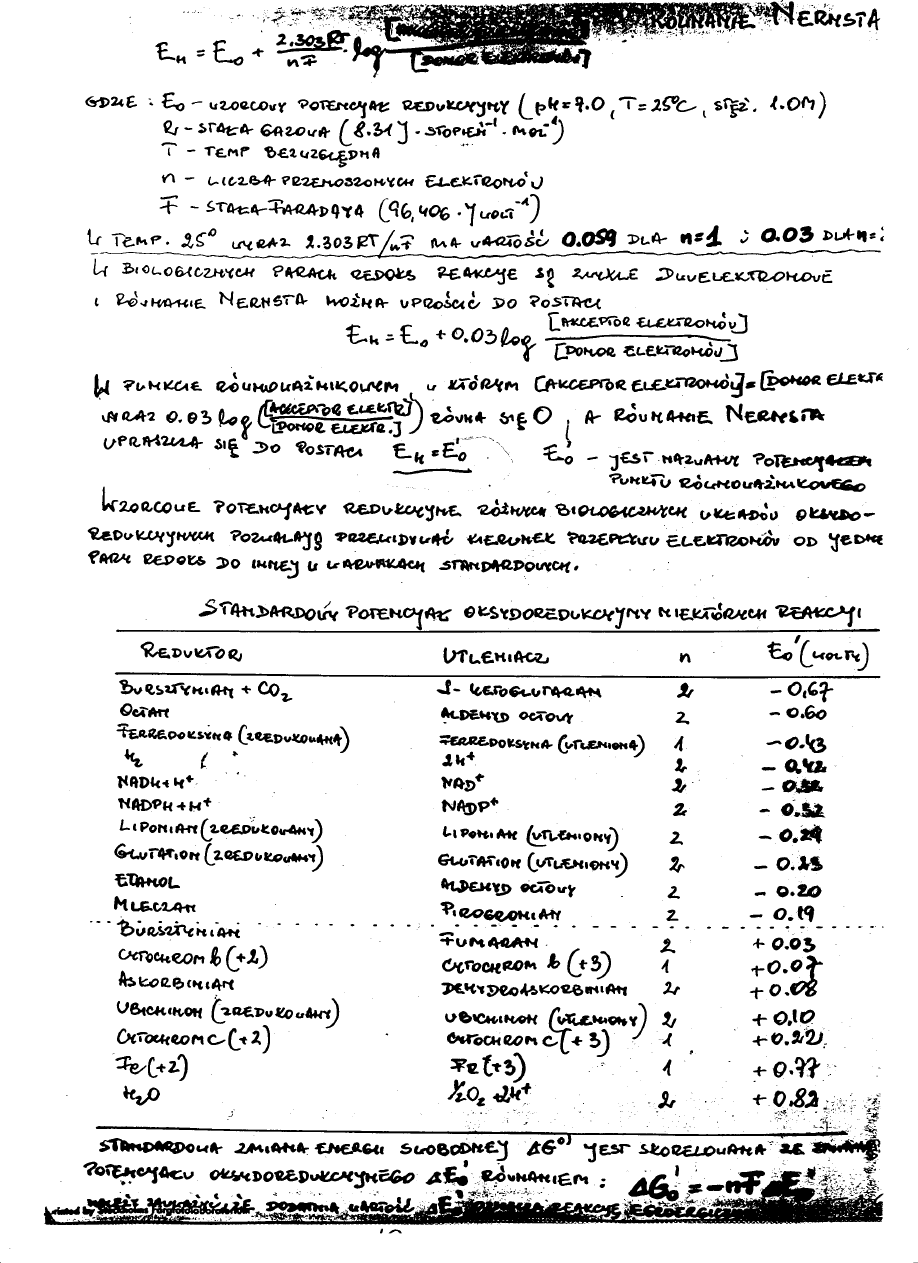 RÓWNANIE NERNSTA
E_H = E_0 + 2.303RT/nF · log [AKCEPTOR ELEKTRONÓW]/[DONOR ELEKTRONÓW]
GDZIE : E_0 – WZORCOWY POTENCJAŁ REDUKCYJNY (pH=7.0, T=25°C, STĘŻ. 1.0M)
R – STAŁA GAZOWA (8.31 J · STOPIEŃ⁻¹ · MOL⁻¹)
T – TEMP BEZWZGLĘDNA
n – LICZBA PRZENOSZONYCH ELEKTRONÓW
F – STAŁA FARADAYA (96,406 · J WOLT⁻¹)
W TEMP. 25° WYRAZ 2.303RT/nF MA WARTOŚĆ 0.059 DLA n=1 i 0.03 DLA n=
W BIOLOGICZNYCH PARACH REDOKS REAKCJE SĄ ZWYKLE DWUELEKTRONOWE
I RÓWNANIE NERNSTA MOŻNA UPROŚCIĆ DO POSTACI
E_H = E_0 + 0.03 log [AKCEPTOR ELEKTRONÓW]/[DONOR ELEKTRONÓW]
W PUNKCIE RÓWNOWAŻNIKOWYM, W KTÓRYM [AKCEPTOR ELEKTRONÓW]=[DONOR ELEKTR
WYRAZ 0.03 log ([AKCEPTOR ELEKTR]/[DONOR ELEKTR.]) RÓWNA SIĘ 0, A RÓWNANIE NERNSTA
UPRASZCZA SIĘ DO POSTACI E_H = E_0' E_0' – JEST NAZWANY POTENCJAŁEM
PUNKTU RÓWNOWAŻNIKOWEGO
WZORCOWE POTENCJAŁY REDUKCYJNE RÓŻNYCH BIOLOGICZNYCH UKŁADÓW OKSYDO-
REDUKCYJNYCH POZWALAJĄ PRZEWIDYWAĆ KIERUNEK PRZEPŁYWU ELEKTRONÓW OD JEDNE
PARY REDOKS DO INNEJ W WARUNKACH STANDARDOWYCH.
STANDARDOWY POTENCJAŁ OKSYDOREDUKCYJNY NIEKTÓRYCH REAKCJI
REDUKTOR UTLENIACZ n E_0' (WOLTY)
BURSZTYNIAN + CO₂ - KETOGLUTARAN 2 – 0,67
OCTAN ALDEHYD OCTOWY 2 – 0.60
FERREDOKSYNA (ZREDUKOWANA) FERREDOKSYNA (UTLENIONA) 1 – 0.43
H₂ 2H⁺ 2 – 0,42
NADH+H⁺ NAD⁺ 2 – 0.32
NADPH+H⁺ NADP⁺ 2 – 0.32
LIPONIAN (ZREDUKOWANY) LIPONIAN (UTLENIONY) 2 – 0.29
GLUTATION (ZREDUKOWANY) GLUTATION (UTLENIONY) 2 – 0.23
ETANOL ALDEHYD OCTOWY 2 – 0.20
MLECZAN PIROGRONIAN 2 – 0.19
BURSZTYNIAN FUMARAN 2 + 0.03
CYTOCHROM b (+2) CYTOCHROM b (+3) 1 +0.07
ASKORBINIAN DEHYDROASKORBINIAN 2 +0.08
UBICHINON (ZREDUKOWANY) UBICHINON (UTLENIONY) 2 + 0,10
CYTOCHROM C (+2) CYTOCHROM C (+3) 1 +0.22
Fe (+2) Fe (+3) 1 + 0.77
H₂O ½O₂ +2H⁺ 2 + 0.82
STANDARDOWA ZMIANA ENERGII SWOBODNEJ ΔG°' JEST SKORELOWANA ZE ZMIANĄ
POTENCJAŁU OKSYDOREDUKCYJNEGO ΔE_0' RÓWNANIEM : ΔG_0' = –nFΔE_0'
NALEŻY ZAUWAŻYĆ, ŻE DODATNIA WARTOŚĆ ΔE_0' REAKCJĘ